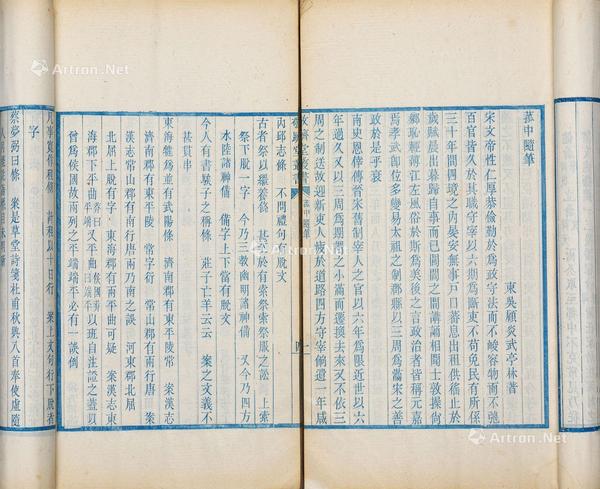 菰中隨筆
東吳顧炎武亭林著
宋文帝性仁厚恭儉勤於爲政守法而不峻容物而不弛
百官皆久於其職守宰以六期爲斷吏不苟免民有所係
三十年間四境之內晏安無事戶口蕃息出租供徭止於
歲賦晨出暮歸自事而已閭閻之間講誦相聞士敦操尚
鄉恥輕薄江左風俗於斯爲美後之言政治者皆稱元嘉
焉孝武卽位多變易太祖之制郡縣以三周爲滿宋之善
政於是乎衰
南史恩倖傳晉宋舊制宰人之官以六年爲限近世以六
年過久又以三周爲期謂之小滿而遷換去來又不依三
周之制送故迎新吏人疲於道路四方守宰餉遺一年咸
敬躋堂叢書
菰中隨筆
內邱志條 不問禮句有脫文
古者祭以 條 甚於有索祭索祭厩之訟 上索
祭下脫一字 今乃三教幽明諸神備 又今乃四方
水陸諸神備 備字上下當有脫文
今人有書城子之條 莊子亡羊云云 案之文義不
甚貫串
東海雖爲並有武陽條 濟南郡有東平陵常 案漢志
濟南郡有東平陵 常字衍 常山郡有兩行唐 案
漢志常山郡有南行唐兩乃南之誤 河東郡北屈
北居上脫有字 東海郡有兩平曲可疑 案漢志東
海郡下平曲 又平曲 以班自注證之蓋以
爲侯國故兩列之平端端平必有一誤倒
字
蔡夢弼曰條 案是草堂詩箋杜甫秋興八首奉使虛隨